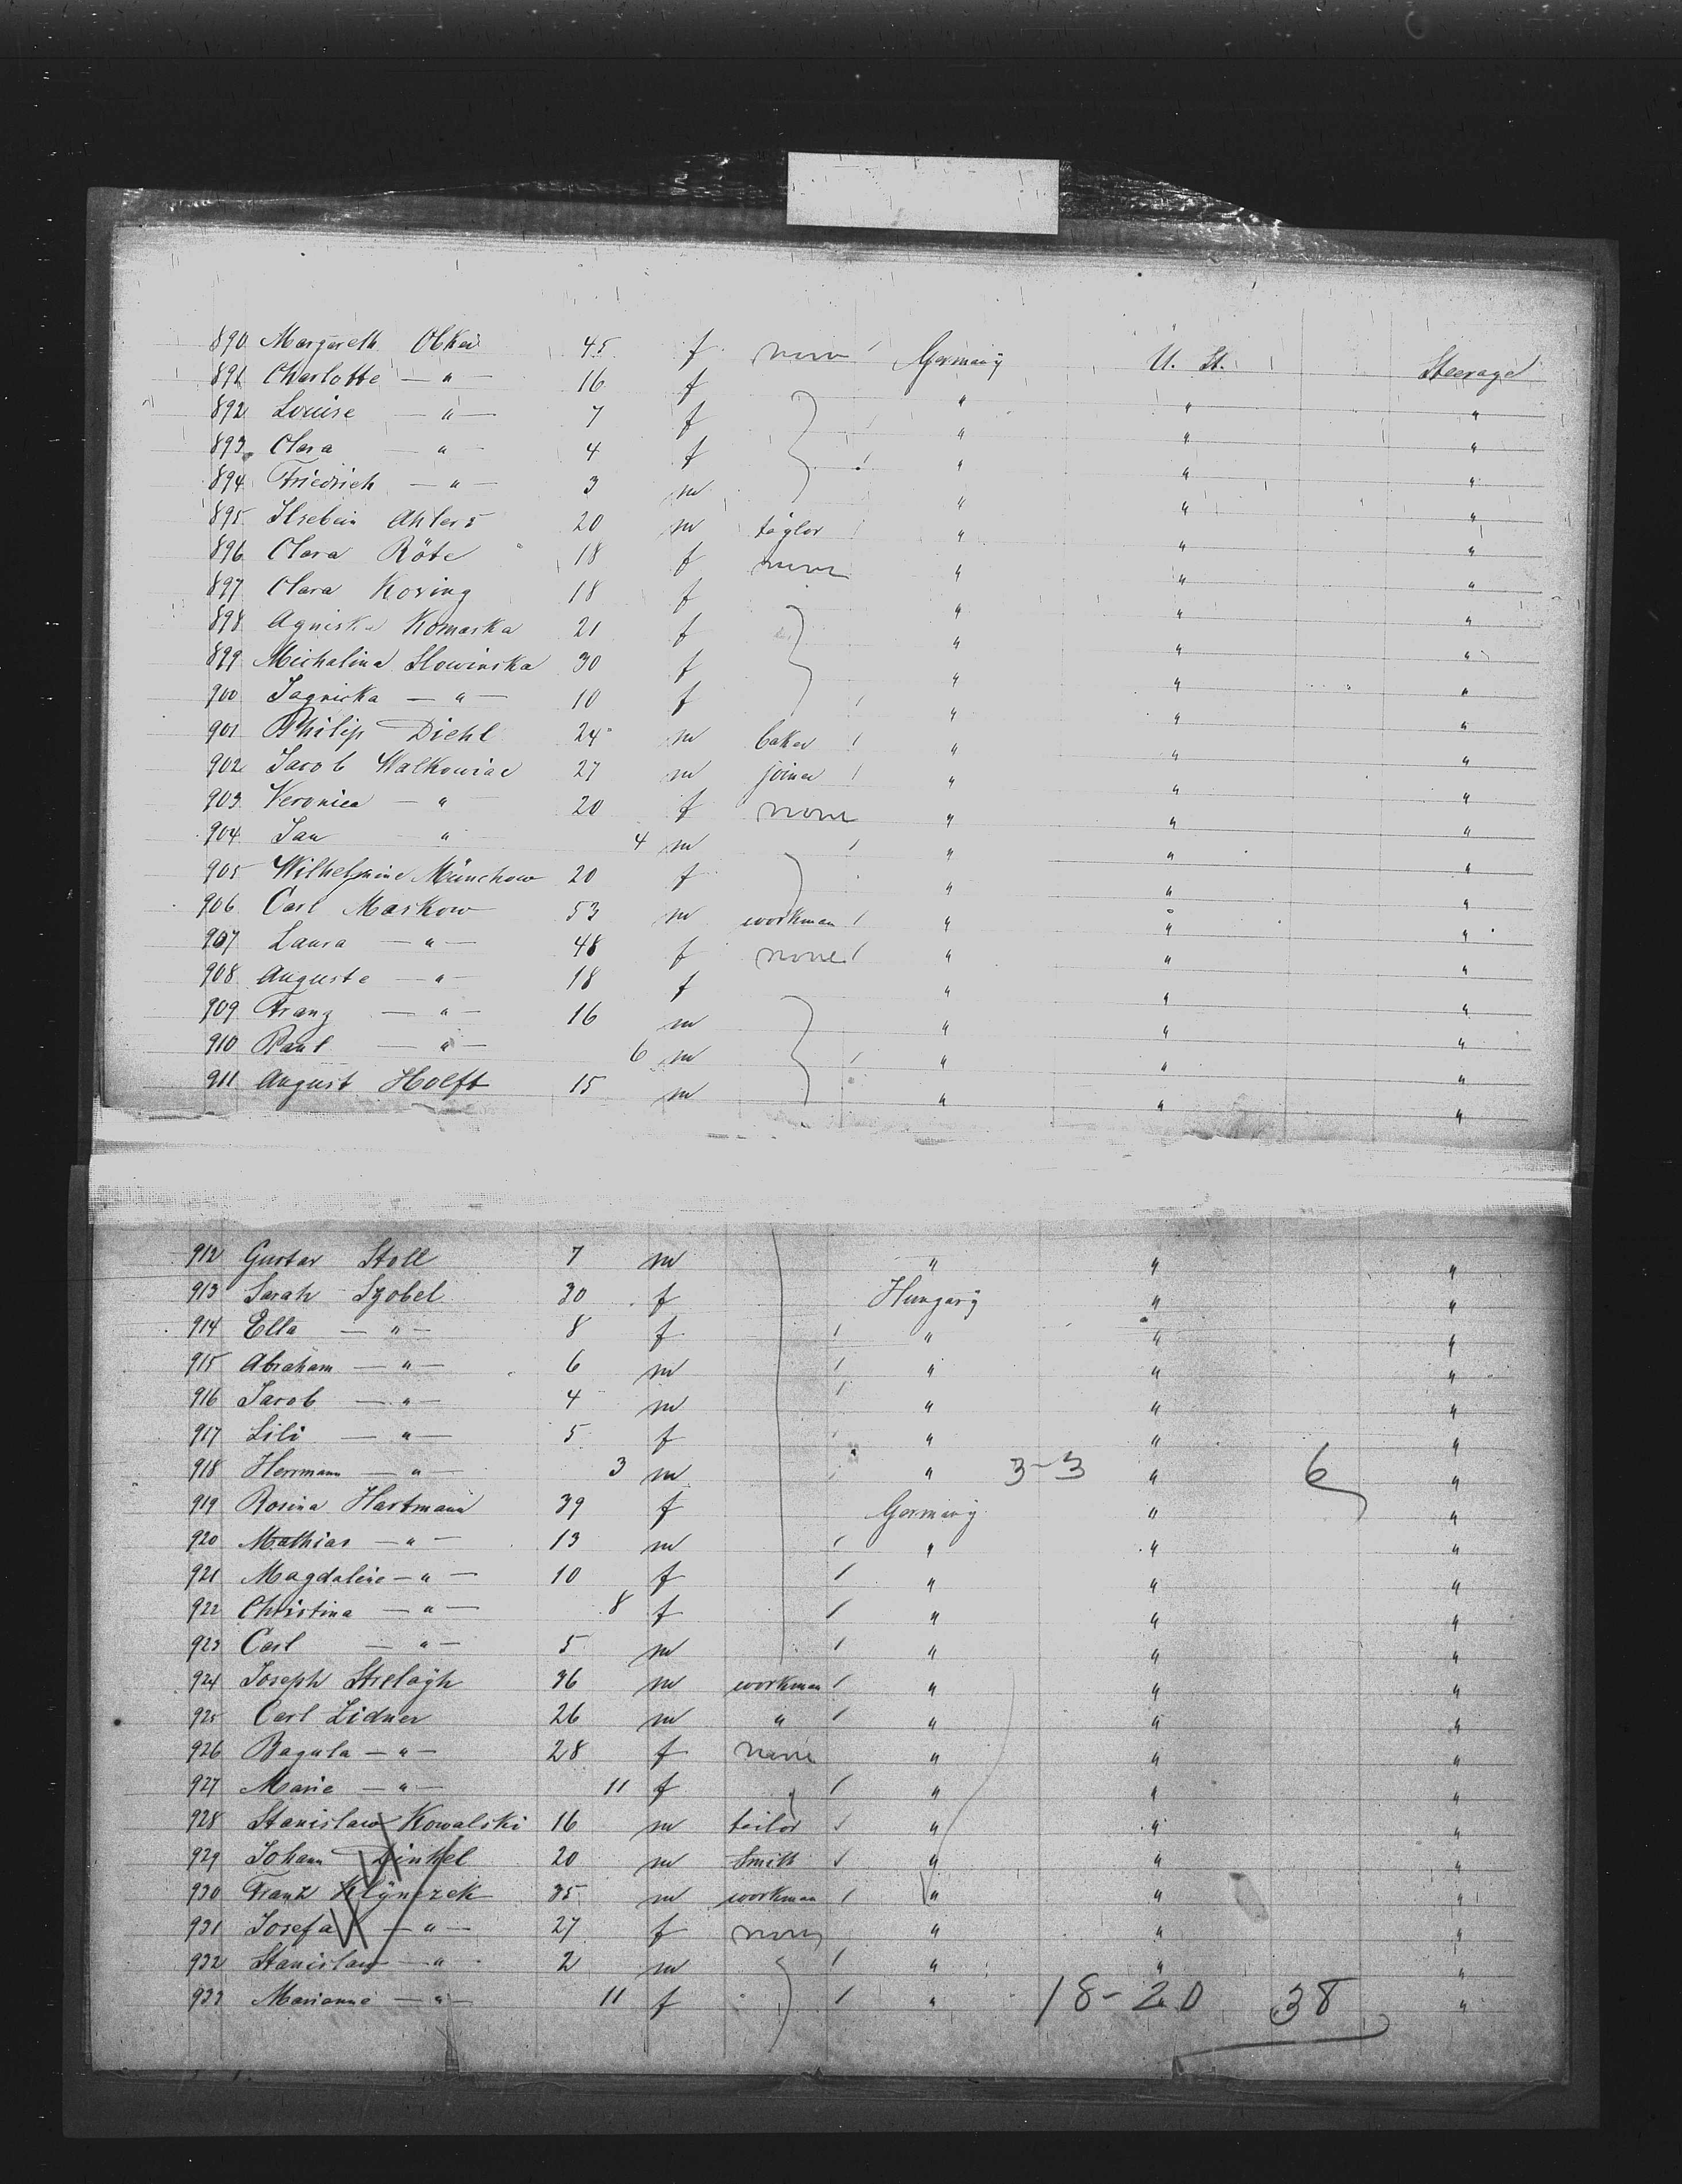 890. Margareth Obkei 45 f none Germany U. St. Steerage
891 Charlotte — " — 16 f " " "
892 Louise — " — 7 f " " "
893 Clara " — 4 f " " "
894 Friedrich — " — 3 m " " "
895 Ilsebein Ahlers 20 m taylor " " "
896 Clara Röte 18 f none " " "
897 Clara Kosing 18 f " " "
898 Agniska Komaska 21 f " " "
899 Michalina Slowinska 30 f " " "
900 Jagniska — " — 10 f " " "
901 Philip Diehl 24 m baker " " "
902 Jacob Walkowiac 27 m joiner " " "
903 Veronica — " 20 f none " " "
904 Jan " 4 m " " "
905 Wilhelmine Münchow 20 f " " "
906 Carl Maskow 53 m workman " " "
907 Laura — " — 48 f none " " "
908 Auguste — " — 18 f " " "
909 Franz — " — 16 m " " "
910 Paul — " — 6 m " " "
911 August Holft 15 m " " "
912 Gustav Stoll 7 m " " "
913 Sarah Szobel 30 f Hungary " "
914 Ella — " — 8 f " " "
915 Abraham — " — 6 m " " "
916 Jacob — " — 4 m " " "
917 Lili — " — 5 f " " "
918 Herrmann — " — 3 m " 3-3 " 6 "
919 Rosina Hartmann 39 f Germany " "
920 Mathias — " — 13 m " " "
921 Magdaleine — " — 10 f " " "
922 Christina — " — 8 f " " "
923 Carl — " — 5 m " " "
924 Joseph Strelagh 36 m workman " " "
925 Carl Lidner 26 m " " " "
926 Bagula — " — 28 f none " " "
927 Marie — " — 11 f " " " "
928 Stanislaw Kowalski 16 m tailor " " "
929 Johann Dinkel 20 m Smith " " "
930 Franz Klynczek 35 m workman " " "
931 Josefa — " — 27 f none " " "
932 Stanislaw — " 2 m " " "
933 Marianne — " — 11 f " 18-20 38 "